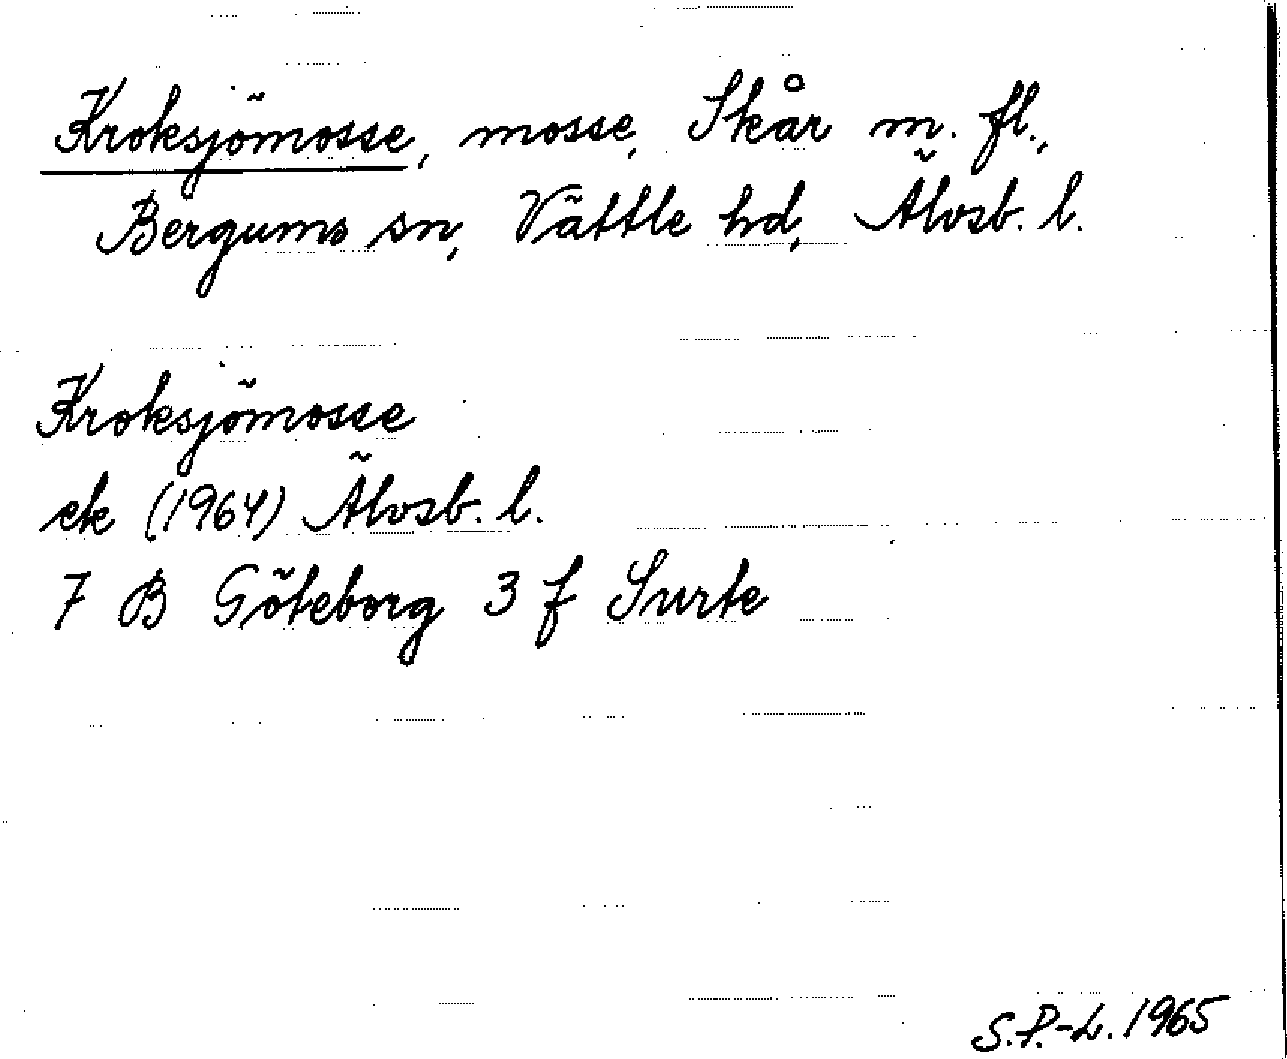 Kroksjömosse, mosse, Skår m. fl.,
Bergums sn, Vättle hd, Älvsb. l.
Kroksjömosse
ek (1964) Älvsb. l.
7 B Göteborg 3 f Surte
S.P.-L. 1965